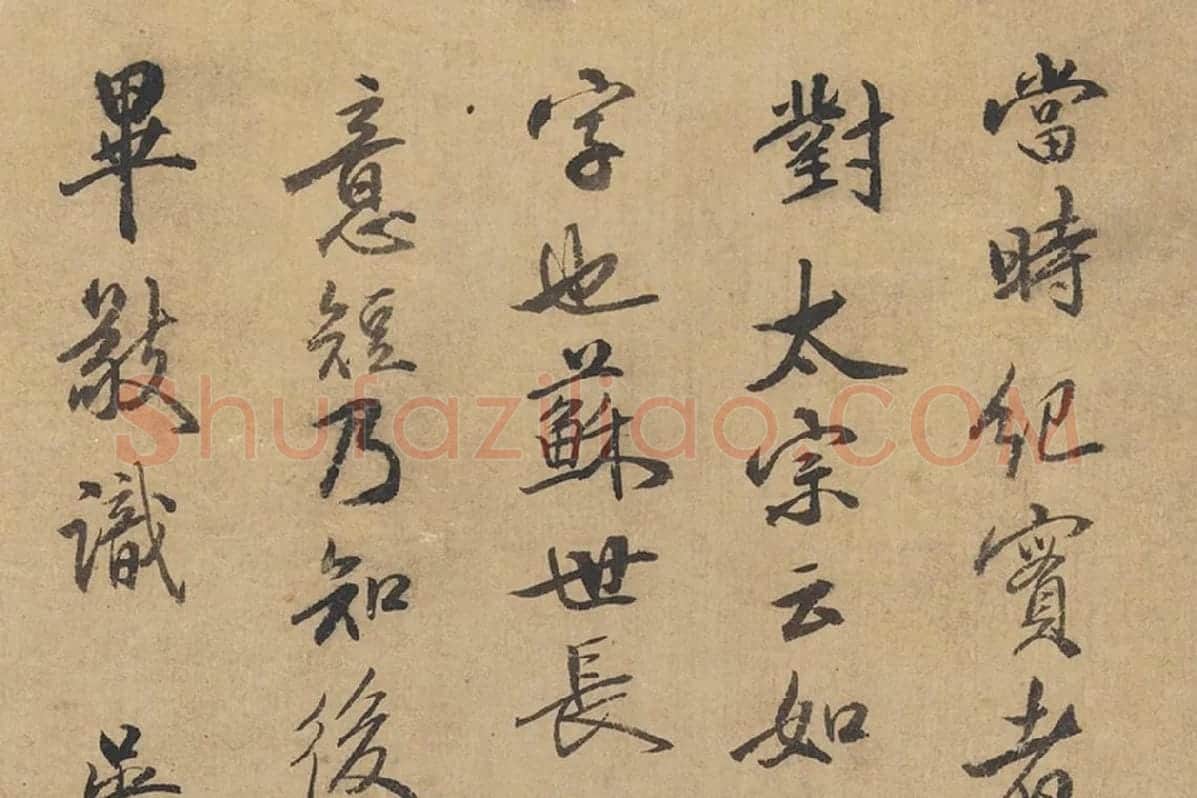 當時紀實者
對太宗云如
字也蘇世長
意短乃知後
畢敬識
Shufaziliao.COM